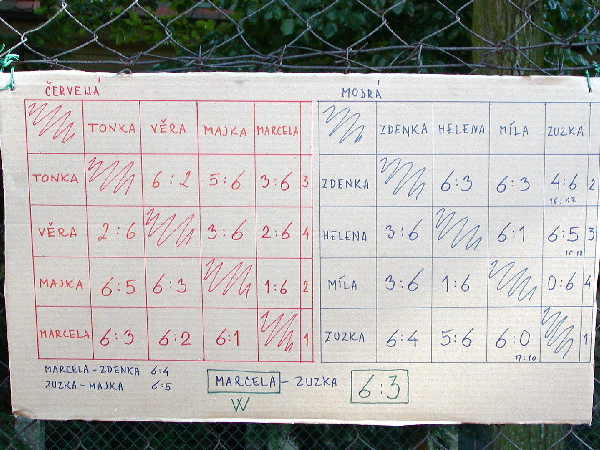 ČERVENÁ
TONKA VĚRA MAJKA MARCELA
TONKA 6:2 5:6 3:6 3
VĚRA 2:6 3:6 2:6 4
MAJKA 6:5 6:3 1:6 2
MARCELA 6:3 6:2 6:1 1
MODRÁ
ZDENKA HELENA MÍLA ZUZKA
ZDENKA 6:3 6:3 4:6 2
HELENA 3:6 6:1 6:5 3
MÍLA 3:6 1:6 0:6 4
ZUZKA 6:4 5:6 6:0 1
MARCELA - ZDENKA 6:4
ZUZKA - MAJKA 6:5
MARCELA - ZUZKA 6:3
W